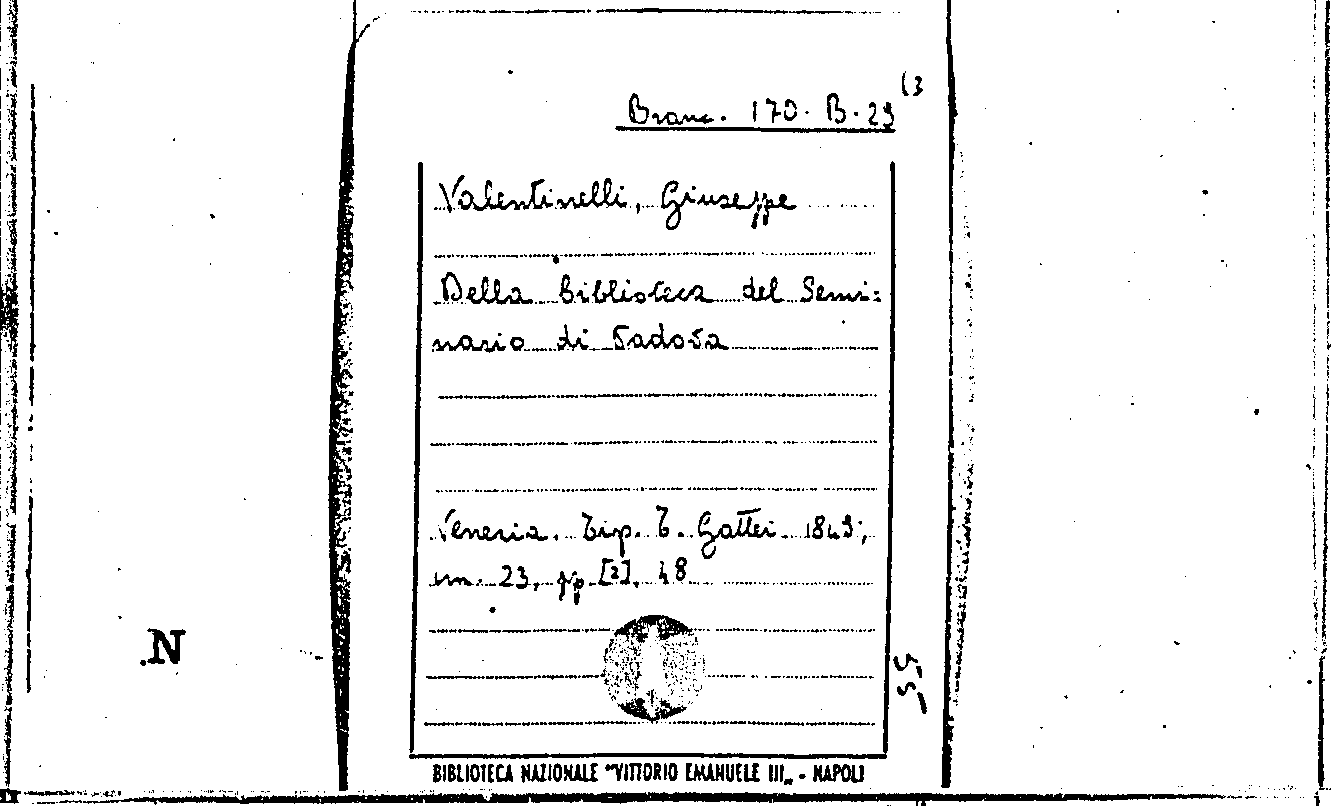 Branc. 170. B. 29 (3
Valentinelli, Giuseppe
Della Biblioteca del Semi=
nario di Padova
Venezia. Tip. T. Gattei. 1849;
cm. 23, pp. [2], 48
N
55
BIBLIOTECA NAZIONALE "VITTORIO EMANUELE III„ - NAPOLI